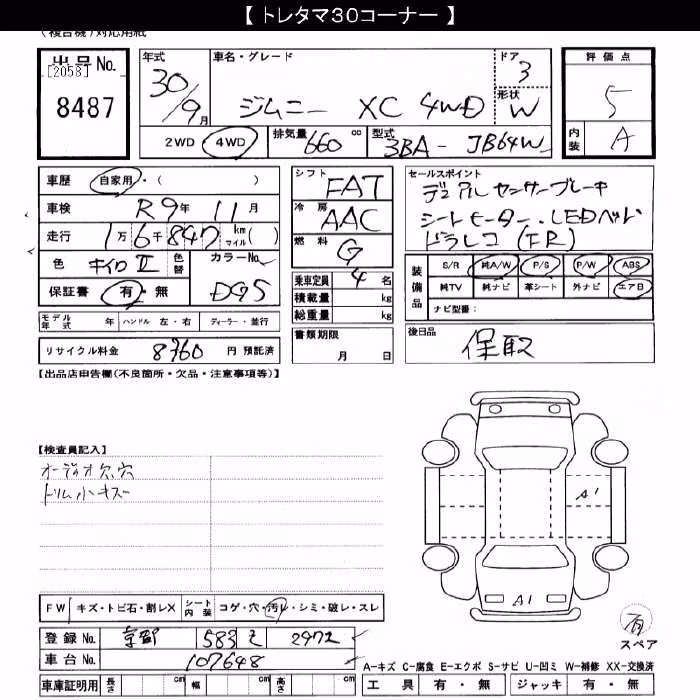 【 トレタマ30コーナー 】
(複合機)対応用紙
出品No.
[2058]
8487
年式 30/9月
車名・グレード ジムニー XC 4WD
ドア 3
形状 W
評価点 5
内装 A
2WD 4WD 排気量 660 cc 型式 3BA - JB64W
車歴 自家用・( )
車検 R9年 11月
走行 1万6千847 km マイル( )
色 キイロII 色替 カラーNo. DG5
保証書 有・無
シフト FAT
冷房 AAC
燃料 G
乗車定員 4名
積載量 kg
総重量 kg
セールスポイント
デュアルセンサーブレーキ
シートヒーター.LEDヘッド
ドラレコ(FR)
装備品 S/R 純A/W P/S P/W ABS
純TV 純ナビ 革シート 外ナビ エアB
ナビ型番:
モデル年式 年 ハンドル 左・右 ディーラー・並行
リサイクル料金 8760 円 預託済
書類期限 月 日
後日品 保取
【出品店申告欄(不良箇所・欠品・注意事項等)】
【検査員記入】
オーディオ欠穴
トリム小キズ
A1
A1
FW キズ・トビ石・割レX シート内装 コゲ・穴・汚レ・シミ・破レ・スレ
登録No. 583 2972
車台No. 107648
車庫証明用 長さ cm 幅 cm 高さ cm
有
スペア
A-キズ C-腐食 E-エクボ S-サビ U-凹ミ W-補修 XX-交換済
工具 有・無 ジャッキ 有・無